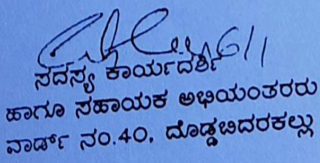 ಸದಸ್ಯ ಕಾರ್ಯದರ್ಶಿ
ಹಾಗೂ ಸಹಾಯಕ ಅಭಿಯಂತರರು
ವಾರ್ಡ್ ನಂ.40, ದೊಡ್ಡಬಿದರಕಲ್ಲು